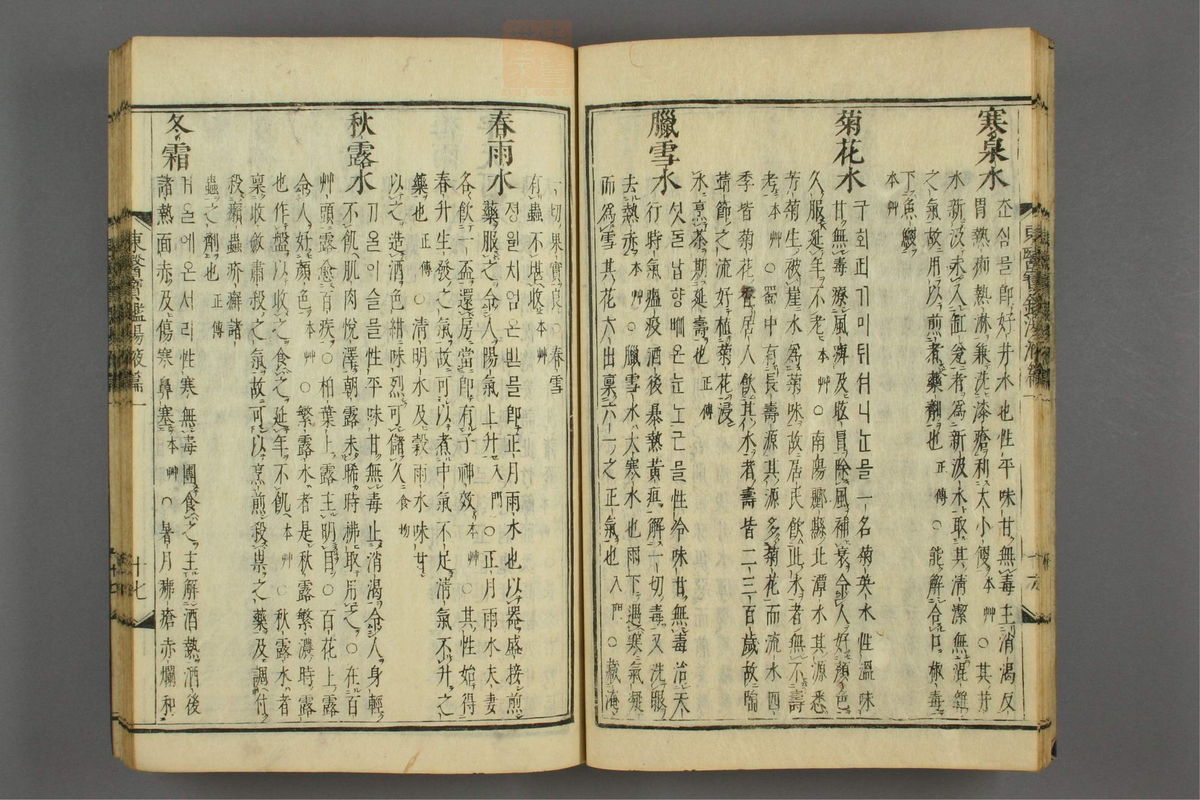 寒泉水
심믈即好井水也性平味甘無毒主消渴反
胃熱痢熱淋兼洗漆瘡利大小便本艸○其井
水新汲未入缸瓮者爲新汲水取其清潔無混雜
之氣故用以煎煮藥劑也正傳○能解合口椒毒
下魚鯁
本艸
菊花水
믈一名菊英水性溫味
甘無毒療風痺及眩冒除風補衰令人好顔色
久服延年不老本艸○南陽酈縣北潭水其源悉
芳菊生被崖水爲菊味故居民飲此水者無不壽
考本艸○蜀中有長壽源其源多菊花而流水四
季皆菊花香居人飲其水者壽皆二三百歲故陶
靖節之流好植菊花浸
水烹茶期延壽也正傳
臘雪水
온눈노근믈性冷味甘無毒治天
行時氣瘟疫酒後暴熱黃疸解一切毒又洗眼
去熱赤本艸○臘雪水大寒水也雨下遇寒氣凝
而爲雪其花六出稟六一之正氣也入門○藏淹
一切果實良○春雪
有蟲不堪收本艸
春雨水
졍월처엄온빈믈即正月雨水也以器盛接煎
藥服之令人陽氣上升入門○正月雨水夫妻
各飲一盃還房當即有子神效本艸○其性始得
春升生發之氣故可以煮中氣不足清氣不升之
藥也正傳○清明水及穀雨水味甘
以之造酒色紺味烈可儲久食物
秋露水
올이슬믈性平味甘無毒止消渴令人身輕
不飢肌肉悅澤朝露未晞時拂取用之○在百
艸頭露愈百疾○柏葉上露主明目○百花上露
令人好顔色本艸○繁露水者是秋露繁濃時露
也作盤以收之食之延年不飢本艸○秋露水者
稟收斂肅殺之氣故可以烹煎殺祟之藥及調付
殺癩蟲疥癬諸
蟲之劑也正傳
冬霜
올에온서리性寒無毒團食之主解酒熱酒後
諸熱面赤及傷寒鼻塞本艸○暑月痱瘡赤爛和
東醫寶鑑湯液篇一
廿七